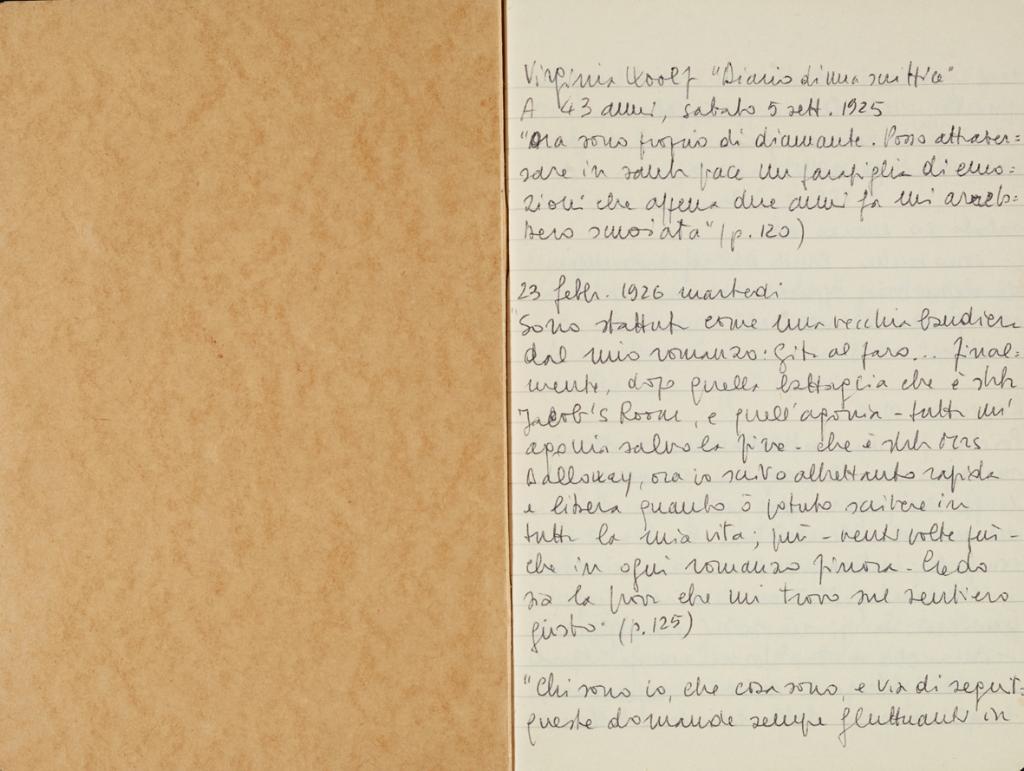 Virginia Woolf "Diario di una scrittrice"
A 43 anni, sabato 5 sett. 1925
"Ora sono proprio di diamante. Posso attraver=
sare in santa pace un parapiglia di emo=
zioni che appena due anni fa mi avreb=
bero smosiata" (p. 120)
23 febbr. 1926 martedì
"Sono sbattuta come una vecchia bandiera
dal mio romanzo: Gita al faro... final=
mente, dopo quella battaglia che è stata
Jacob's Room, e quell'agonia - tutta un'
agonia salvo la fine - che è stata Mrs
Dalloway, ora io scrivo altrettanto rapida
e libera quanto ò potuto scrivere in
tutta la mia vita; più - venti volte più -
che in ogni romanzo finora. Credo
sia la prova che mi trovo sul sentiero
giusto." (p. 125)
"Chi sono io, che cosa sono, e via di seguito
queste domande sempre fluttuanti in